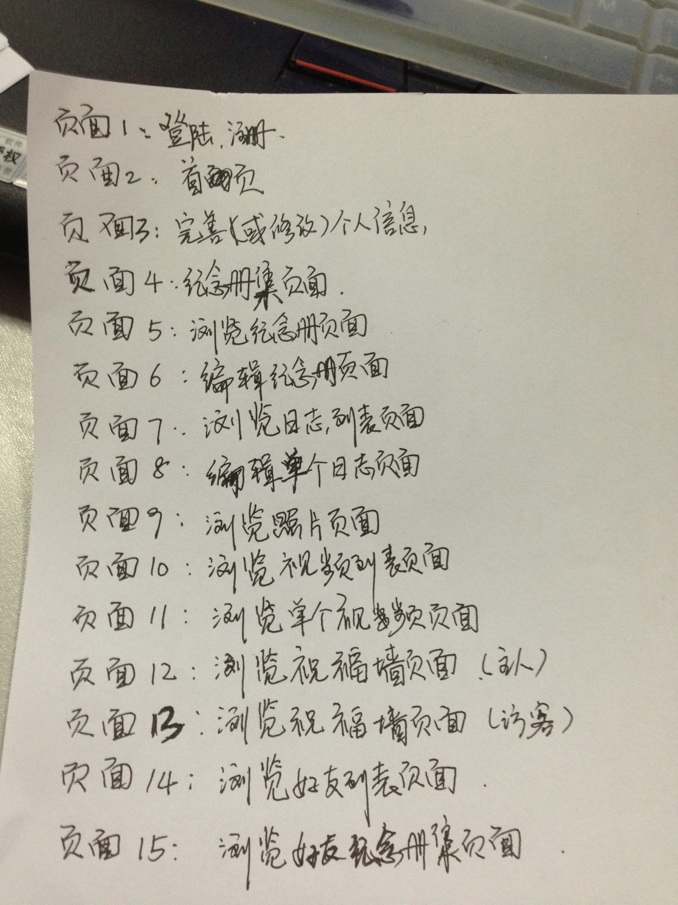 页面1：登陆.注册.
页面2：首页
页面3：完善(或修改)个人信息.
页面4：纪念册集页面.
页面5：浏览纪念册页面
页面6：编辑纪念册页面
页面7：浏览日志列表页面
页面8：编辑单个日志页面
页面9：浏览照片页面
页面10：浏览视频列表页面
页面11：浏览单个视频页面
页面12：浏览祝福墙页面(主人)
页面13：浏览祝福墙页面(访客)
页面14：浏览好友列表页面.
页面15：浏览好友纪念册集页面.
权